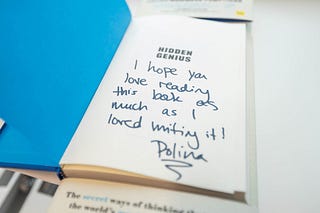 HIDDEN
GENIUS
I hope you
love reading
this book as
much as I
loved writing it!
Polina
The secret ways of thinking tha
the world's mo